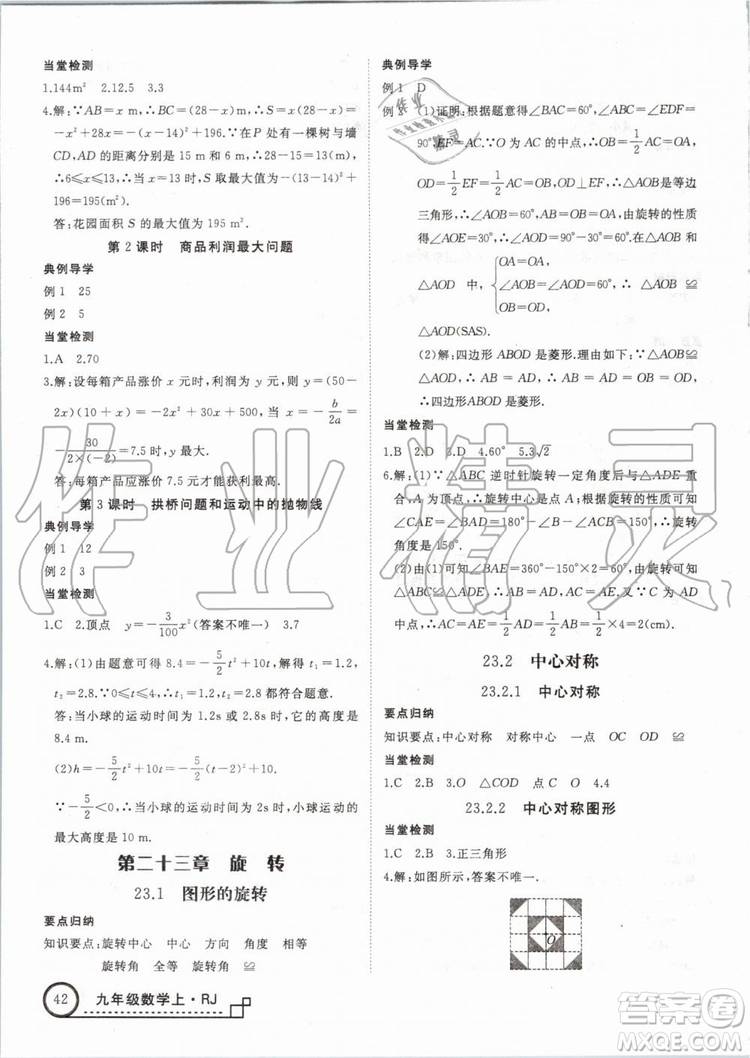 当堂检测
1.144m² 2.12.5 3.3
4.解:∵AB=x,∴BC=28-x,∴S=x(28-x)=
-x²+28x=-(x-14)²+196.∵在P处有一棵树与墙
CD,AD的距离分别是15 m和6 m,∵28-15=13(m),
∴6≤x≤13,∴当x=13时,S取最大值为-(13-14)²+
196=195(m²).
答:花园面积S的最大值为195 m².
第2课时 商品利润最大问题
典例导学
例1 25
例2 5
当堂检测
1.A 2.70
3.解:设每箱产品涨价x元时,利润为y元,则y=(50-
2x)(10+x)=-2x²+30x+500,当x=-b/2a=
-30/(2×(-2))=7.5时,y取得最大值.
答:每箱产品应涨价7.5元才能获得最大利润.
第3课时 拱桥问题和运动中的抛物线
典例导学
例1 12
例2 3
当堂检测
1.C 2.顶点 y=-3/100x²(答案不唯一) 3.7
4.解:(1)由题意可得8.4=-5/2t²+10t,解得t₁=1.2,
t₂=2.8,∵0≤t≤4,∴t=1.2或2.8都符合题意.
答:当小球的运动时间为1.2s或2.8s时,小球的高度是
8.4 m.
(2)h=-5/2t²+10t=-5/2(t-2)²+10.
∵-5/2<0,∴当小球的运动时间为2s时,小球运动的
最大高度是10 m.
第二十三章 旋 转
23.1 图形的旋转
要点归纳
知识要点:旋转中心 中心 方向 角度 相等
旋转角 全等 旋转角 ≌
42 九年级数学上·RJ
典例导学
例1 D
例2 (1)证明:根据题意得∠BAC=60°,∠AEF=∠EDF=
90°,EF=AC.∵O为AC的中点,∴OB=1/2AC,
OD=1/2EF=1/2AC,OD⊥EF,∴△AOB是等边
三角形,∴AO=AB,∠AOB=60°.由旋转的性质
得∠AOE=30°,∴∠AOD=90°-30°=60°.在△AOB和
△AOD中 { OA=OA, ∠AOB=∠AOD=60°, OB=OD, ∴△AOB≌
△AOD(SAS).
(2)解:四边形ABOD是菱形.理由如下:∵△AOB≌
△AOD,∴AB=AD,∴AB=AD=OB=OD,∴
四边形ABOD是菱形.
当堂检测
1.B 2.D 3.D 4.60° 5.3√2
6.解:(1)∵△ABC逆时针旋转一定角度后与△ADE重
合,A为顶点,∴旋转中心是点A;根据旋转的性质可知
∠CAE=∠BAD=180°-∠B-∠ACB=150°,∴旋转
角度是150°.
(2)由(1)可知∠BAE=360°-150°×2=60°,由旋转可知
△ABC≌△ADE,∴AB=AD,AC=AE.又∵C为AD
的中点,∴AC=AE=1/2AD=1/2AB=1/2×4=2(cm).
23.2 中心对称
23.2.1 中心对称
要点归纳
知识要点:中心对称 对称中心 一点 OC OD ≌
当堂检测
1.C 2.B 3.O △COD 点C O 4.4
23.2.2 中心对称图形
当堂检测
1.C 2.B 3.正三角形
4.解:如图所示,答案不唯一.
O
作业精灵
答案圈
MXQE.COM